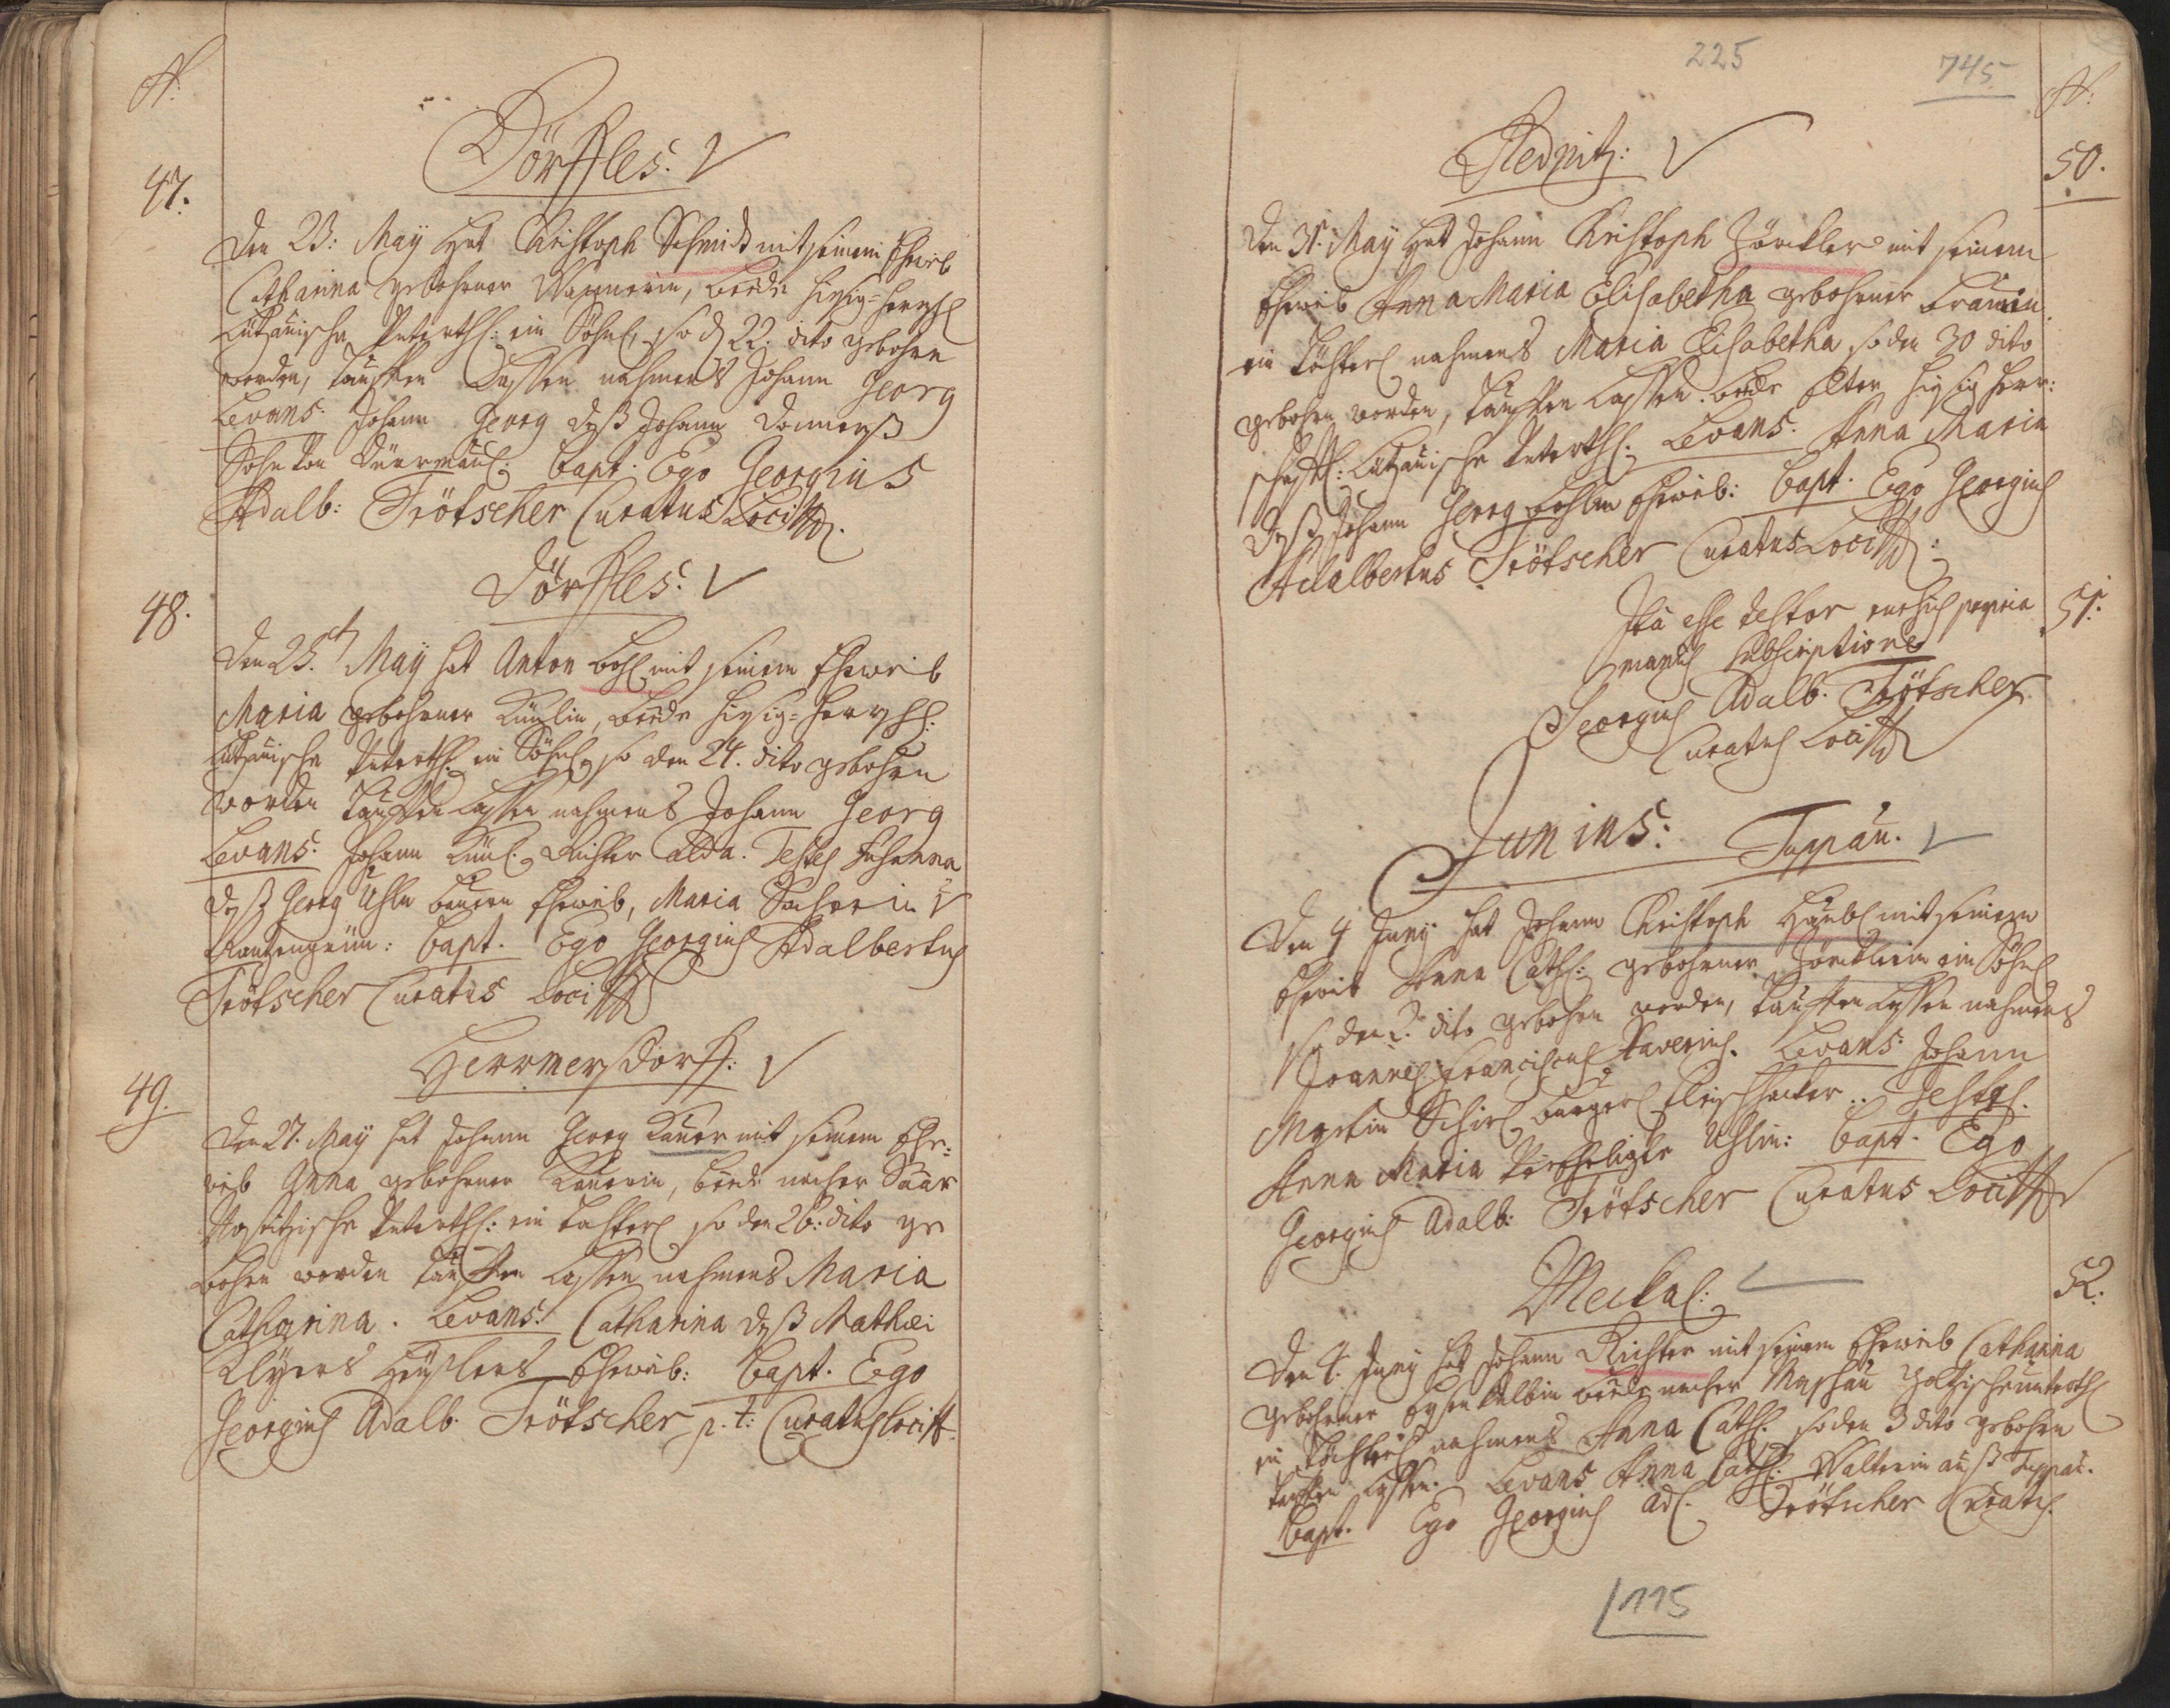 N:
Dörffles.
47.
Den 23: Maÿ hat Christoph Schmidt mit seinem Eheweib
Catharina gebohrner Wagnerin, beede hiesig-herrschl
Lützauische Unterth: ein Söhnl, so d 22. dito gebohrn
worden, tauffen lassen nahmens Johann Georg
Levans: Johann Georg deß Johann
Sohn von Dürmaul. Bapt. Ego Georgius
Adalb: Trötscher Curatus Loci
Dörffles.
48.
Den 25. Maÿ hat Anton mit seinem Eheweib
Maria gebohrner beede hiesig-herrschl:
Lützauische Unterth: ein Söhnl, so den 24. dito gebohrn
worden tauffen lassen nahmens Johann Georg
Levans: Johann Richter alda. Testes Susanna
deß Georg Uhln Bauern Eheweib, Maria v
Bapt. Ego Georgius Adalbertus
Trötscher Curatus Loci
Hermersdorff:
49.
Den 27. Maÿ hat Johann Georg Bauer mit seinem Ehe=
weib Anna gebohrner Bauerin, beede nacher Saar
Unterth: ein Tochterl so den 26: dito ge
bohrn worden tauffen lassen nahmens Maria
Catharina. Levans: Catharina deß Mathæi
Eheweib: Bapt. Ego
Georgius Adalb. Trötscher p. t: Curatus loci
225
745
N:
Rednitz:
50.
Den 31. Maÿ hat Johann Christoph Zörckler mit seinem
Eheweib Anna Maria Elisabetha gebohrner
ein Töchterl nahmens Maria Elisabetha so den 30 dito
gebohrn worden, tauffen lassen. beede Eltern hiesig herr:
schafftl: Lützauische Unterth: Levans. Anna Maria
deß Johann Georg Eheweib: Bapt. Ego Georgius
Adalbertus Trötscher Curatus Loci
Ita esse testor propria
manus subscriptione
Georgius Adalb. Trötscher
Curatus Loci
51.
Junius: Tuppau.
Den 4 Junÿ hat Johann Christoph mit seinem
Eheweib Anna Cath: gebohrner Zörcklerin ein Söhnl
so den dito gebohrn worden, tauffen lassen nahmens
Joannes Franciscus Xaverius. Levans: Johann
Martin Burgerl. Fleischhacker. Testes.
Anna Maria Uhlin: Bapt. Ego
Georgius Adalb: Trötscher Curatus Loci
52.
Den 4. Junÿ hat Johann Richter mit seinem Eheweib Catharina
gebohrner beede nacher Maschau
ein Töchterl nahmens Anna Cath. so den 3 dito gebohrn
tauffen lassen. Levans Anna Cath: Walterin auß Tuppau.
Bapt. Ego Georgius Ad. Trötscher Curatus.
115